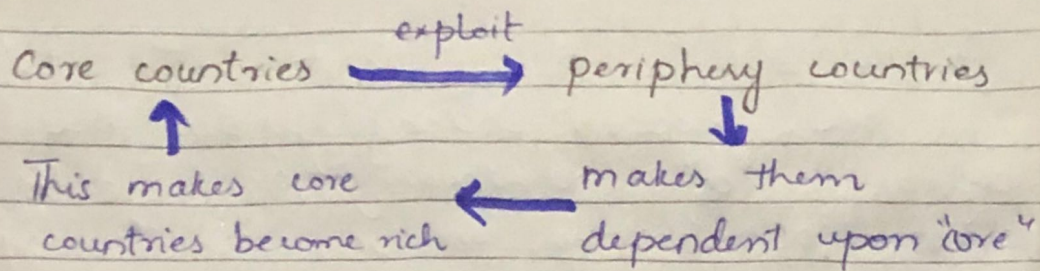 exploit
Core countries periphery countries
This makes core makes them
countries become rich dependent upon "core"